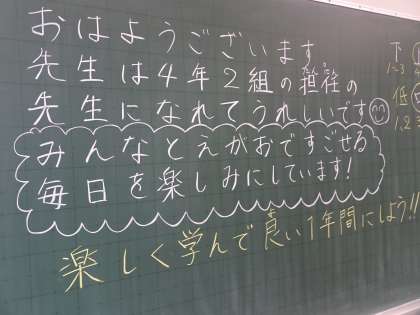 おはようございます
先生は4年2組の担任の
先生になれてうれしいです
みんなとえがおですごせる
毎日を楽しみにしています!
楽しく学んで良い1年間にしよう!!
下
1~3
低
1,2